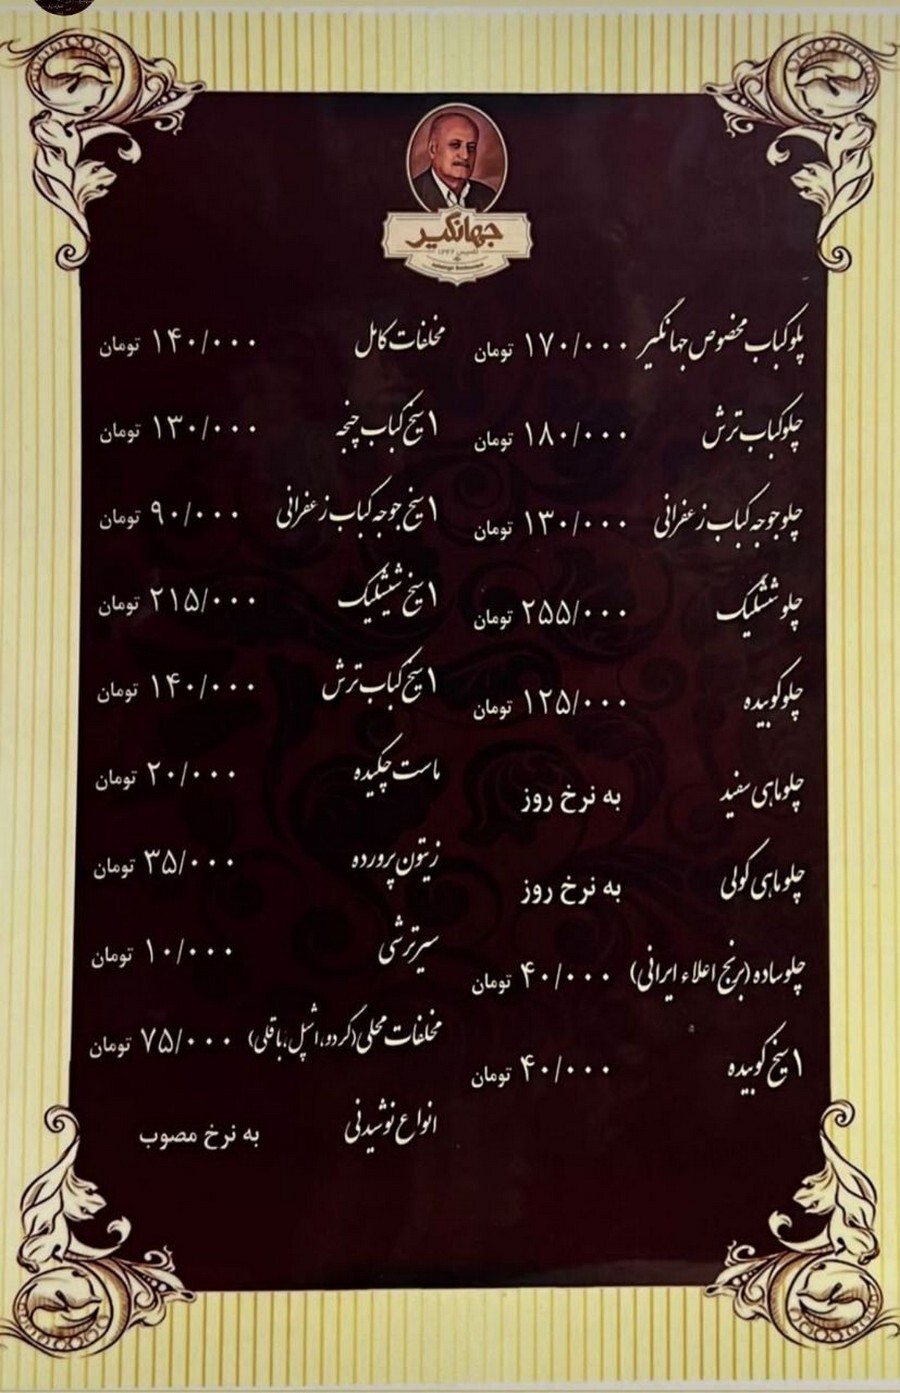 جهانگیر
تاسیس ۱۳۴۲
پلوکباب مخصوص جهانگیر ۱۷۰/۰۰۰ تومان
چلوکباب ترش ۱۸۰/۰۰۰ تومان
چلو جوجه کباب زعفرانی ۱۳۰/۰۰۰ تومان
چلو ششلیک ۲۵۵/۰۰۰ تومان
چلوکوبیده ۱۲۵/۰۰۰ تومان
چلوماهی سفید به نرخ روز
چلوماهی کولی به نرخ روز
چلوساده (برنج اعلاء ایرانی) ۴۰/۰۰۰ تومان
۱ سیخ کوبیده ۴۰/۰۰۰ تومان
مخلفات کامل ۱۴۰/۰۰۰ تومان
۱ سیخ کباب چنجه ۱۳۰/۰۰۰ تومان
۱ سیخ جوجه کباب زعفرانی ۹۰/۰۰۰ تومان
۱ سیخ شیشلیک ۲۱۵/۰۰۰ تومان
۱ سیخ کباب ترش ۱۴۰/۰۰۰ تومان
ماست چکیده ۲۰/۰۰۰ تومان
زیتون پرورده ۳۵/۰۰۰ تومان
سیرترشی ۱۰/۰۰۰ تومان
مخلفات محلی (گردو، اشپل، باقلی) ۷۵/۰۰۰ تومان
انواع نوشیدنی به نرخ مصوب